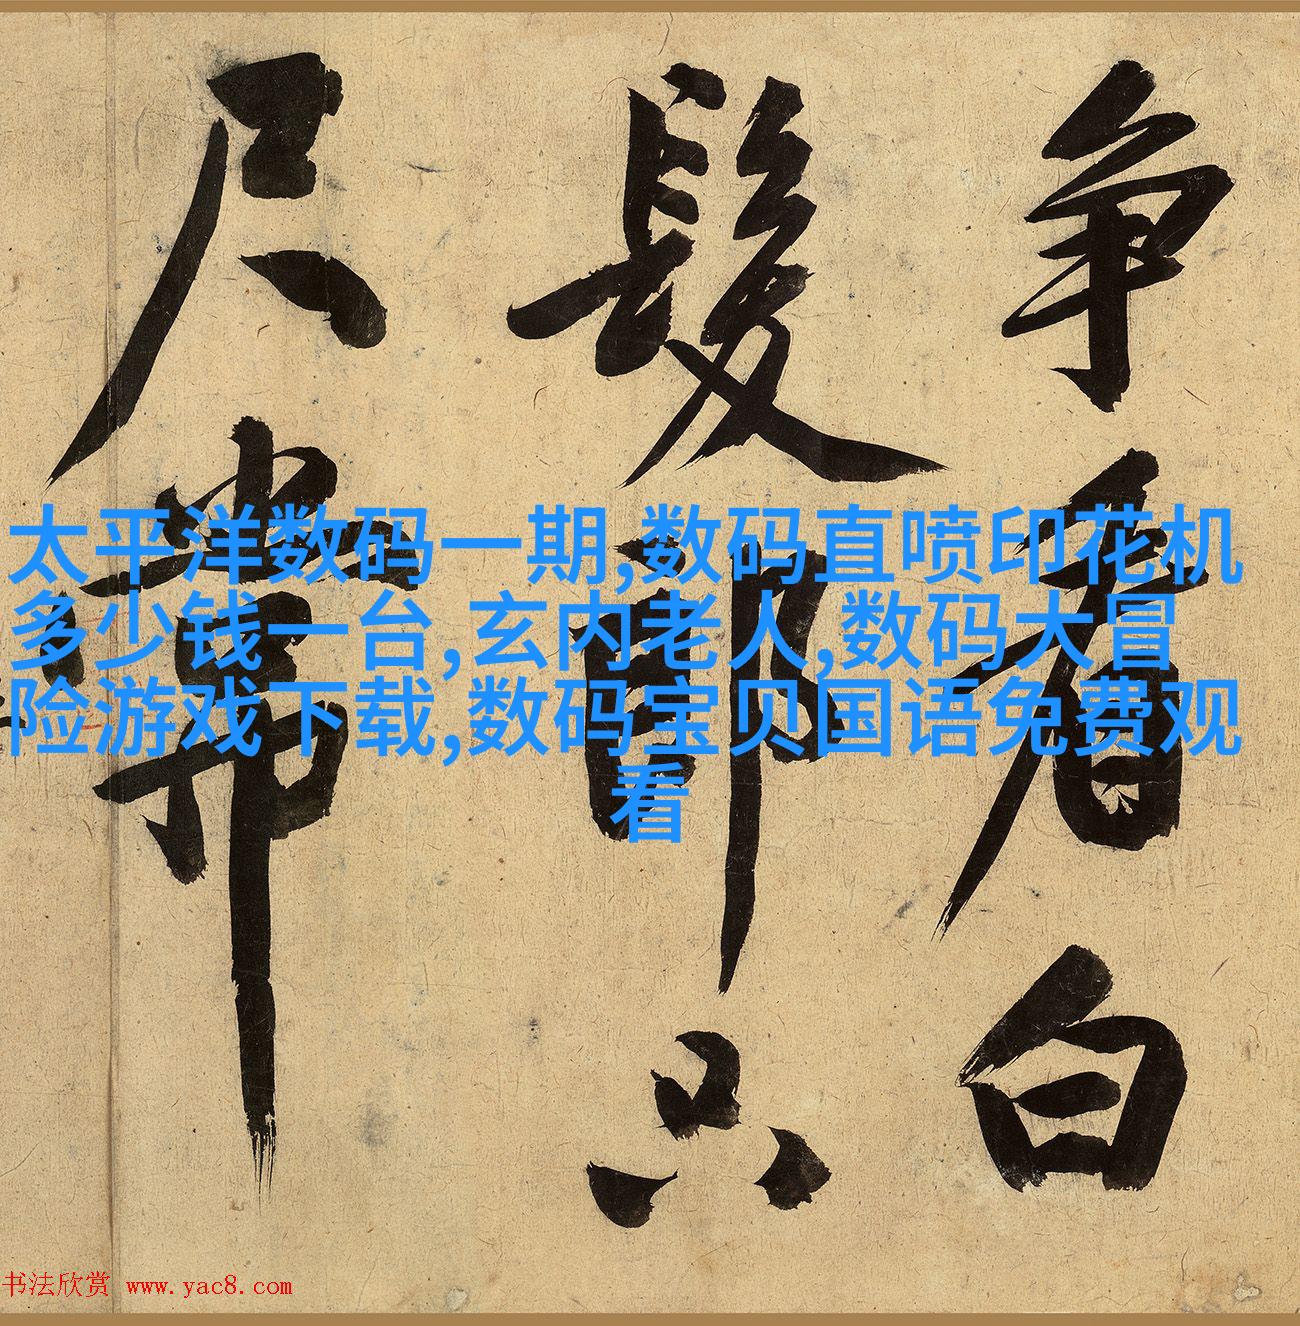 争看白
髮郎只
尺常
太平洋数码一期,数码直喷印花机
多少钱一台,玄内老人,数码大冒
险游戏下载,数码宝贝国语免费观
看
书法欣赏 www.yac8.com